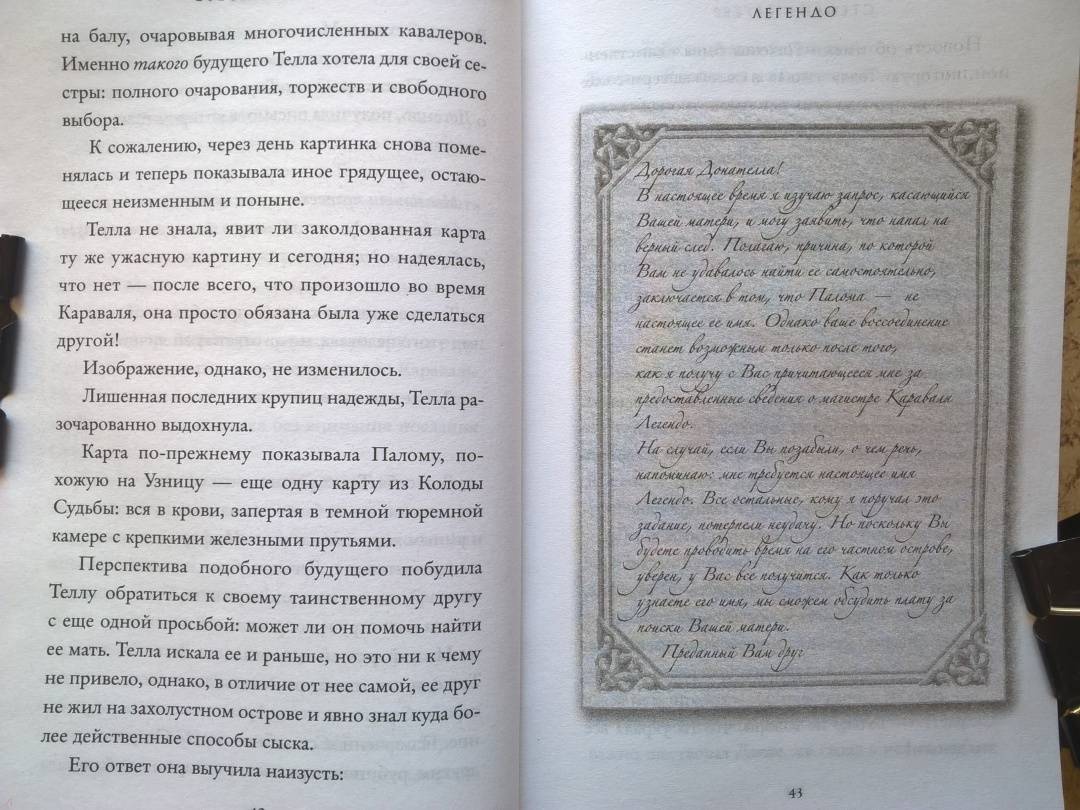 на балу, очаровывая многочисленных кавалеров.
Именно такого будущего Телла хотела для своей се-
стры: полного очарования, торжеств и свободного
выбора.
К сожалению, через день картинка снова поме-
нялась и теперь показывала иное грядущее, остаю-
щееся неизменным и поныне.
Телла не знала, явит ли заколдованная карта
ту же ужасную картину и сегодня; но надеялась,
что нет — после всего, что произошло во время
Караваля, она просто обязана была уже сделаться
другой!
Изображение, однако, не изменилось.
Лишенная последних крупиц надежды, Телла ра-
зочарованно выдохнула.
Карта по-прежнему показывала Палому, по-
хожую на Узницу — еще одну карту из Колоды
Судьбы: вся в крови, запертая в темной тюремной
камере с крепкими железными прутьями.
Перспектива подобного будущего побудила
Теллу обратиться к своему таинственному другу
с еще одной просьбой: может ли он помочь найти
ее мать. Телла искала ее и раньше, но это ни к чему
не привело, однако, в отличие от нее самой, ее друг
не жил на захолустном острове и явно знал куда бо-
лее действенные способы сыска.
Его ответ она выучила наизусть:
ЛЕГЕНДО
Дорогая Донателла!
В настоящее время я изучаю запрос, касающийся
Вашей матери, и могу заявить, что напал на
верный след. Полагаю, причина, по которой
Вам не удавалось найти ее самостоятельно,
заключается в том, что Палома — не
настоящее ее имя. Однако ваше воссоединение
станет возможным только после того,
как я получу с Вас причитающееся мне за
предоставленные сведения о магистре Караваля
Легендо.
На случай, если Вы позабыли, о чем речь,
напоминаю: мне требуется настоящее имя
Легендо. Все остальные, кому я поручал это
задание, потерпели неудачу. Но поскольку Вы
будете проводить время на его частном острове,
уверен, у Вас все получится. Как только
узнаете его имя, мы сможем обсудить плату за
поиски Вашей матери.
Преданный Вам друг
43